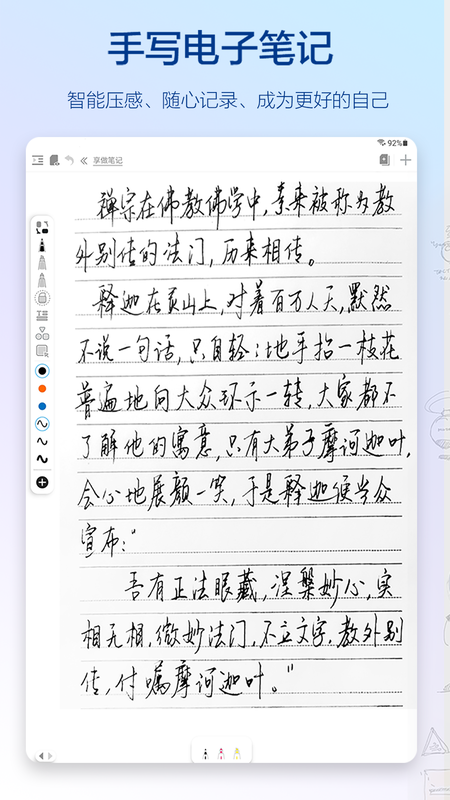 手写电子笔记
智能压感、随心记录、成为更好的自己
92%
享做笔记
禅宗在佛教佛学中,素来被称为教
外别传的法门,历来相传。
释迦在灵山上,对着百万人天,默然
不说一句话,只自轻轻地手拈一枝花
普遍地向大众环示一转,大家都不
了解他的寓意,只有大弟子摩诃迦叶,
会心地展颜一笑,于是释迦便当众
宣布:“
吾有正法眼藏,涅槃妙心,实
相无相,微妙法门,不立文字,教外别
传,付嘱摩诃迦叶。”